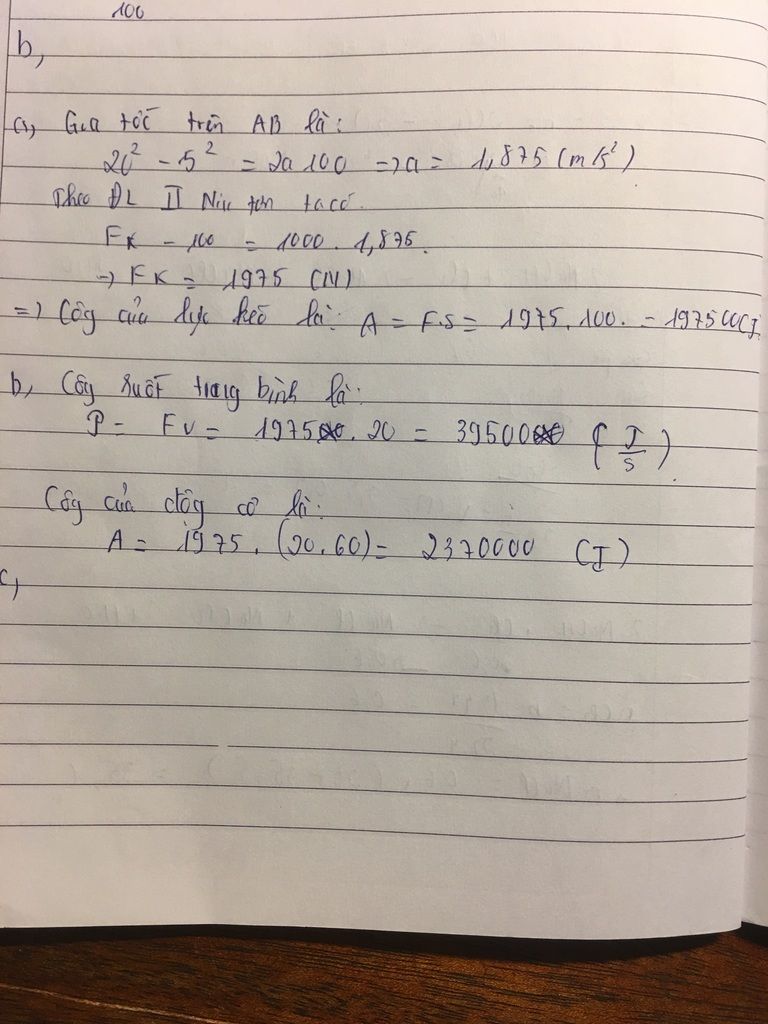 100
b,
a, Gia tốc trên AB là:
20² - 5² = 2a 100 => a = 1,875 (m/s²)
Theo ĐL II Niu tơn ta có.
FK - 100 = 1000. 1,875.
=> FK = 1975 (N)
=> Công của lực kéo là: A = F.S = 1975. 100. = 197500 (J
b, Công suất trung bình là:
P = Fv = 1975. 20 = 39500 (J/s)
Công của động cơ là:
A = 1975. (20. 60) = 2370000 (J)
c,